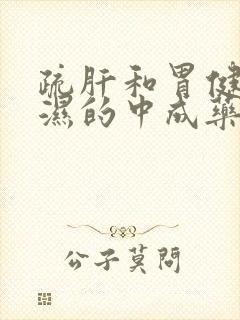 疏肝和胃健
湿的中成药
公子莫問